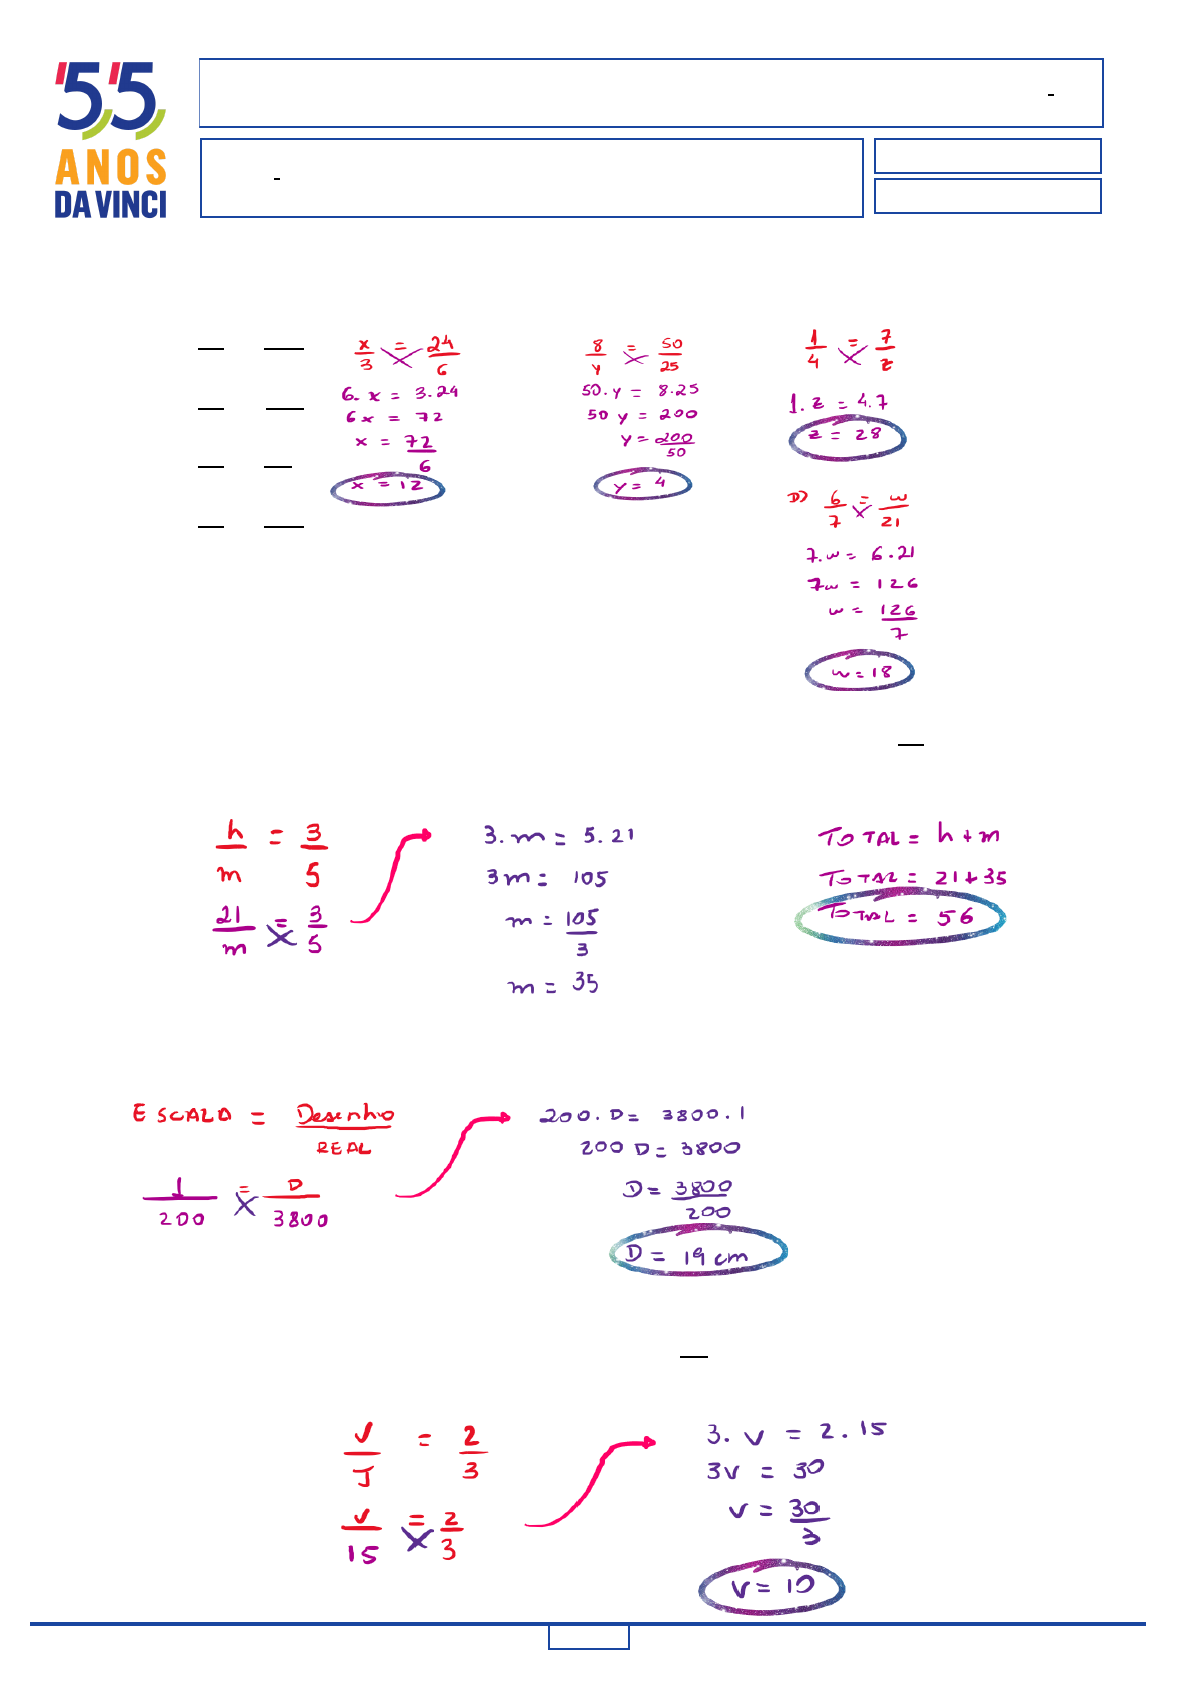 55
ANOS
DA VINCI
x/3 = 24/6
6.x = 3.24
6x = 72
x = 72/6
x = 12
8/y = 50/25
50.y = 8.25
50y = 200
y = 200/50
y = 4
1/4 = 7/z
1.z = 4.7
z = 28
D) 6/7 = w/21
7.w = 6.21
7w = 126
w = 126/7
w = 18
h/m = 3/5
21/m = 3/5
3.m = 5.21
3m = 105
m = 105/3
m = 35
TOTAL = h+m
TOTAL = 21+35
TOTAL = 56
ESCALA = Desenho/REAL
1/200 = D/3800
200.D = 3800.1
200D = 3800
D = 3800/200
D = 19cm
V/J = 2/3
V/15 = 2/3
3.V = 2.15
3V = 30
V = 30/3
V = 10